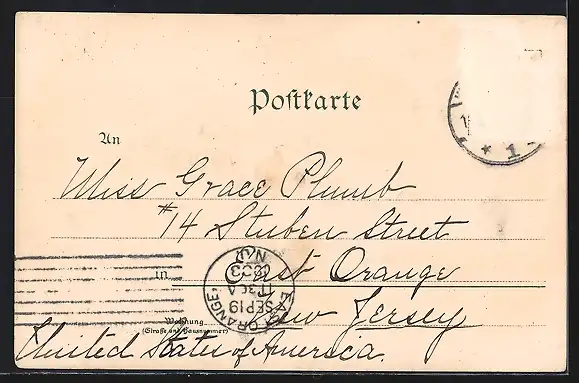 Postkarte
An
Miss Grace Plumb
#14 Stuben Street
in East Orange
New Jersey
Wohnung
(Straße und Hausnummer)
United States of America.
EAST ORANGE,
SEP 19
N.J.
* 1